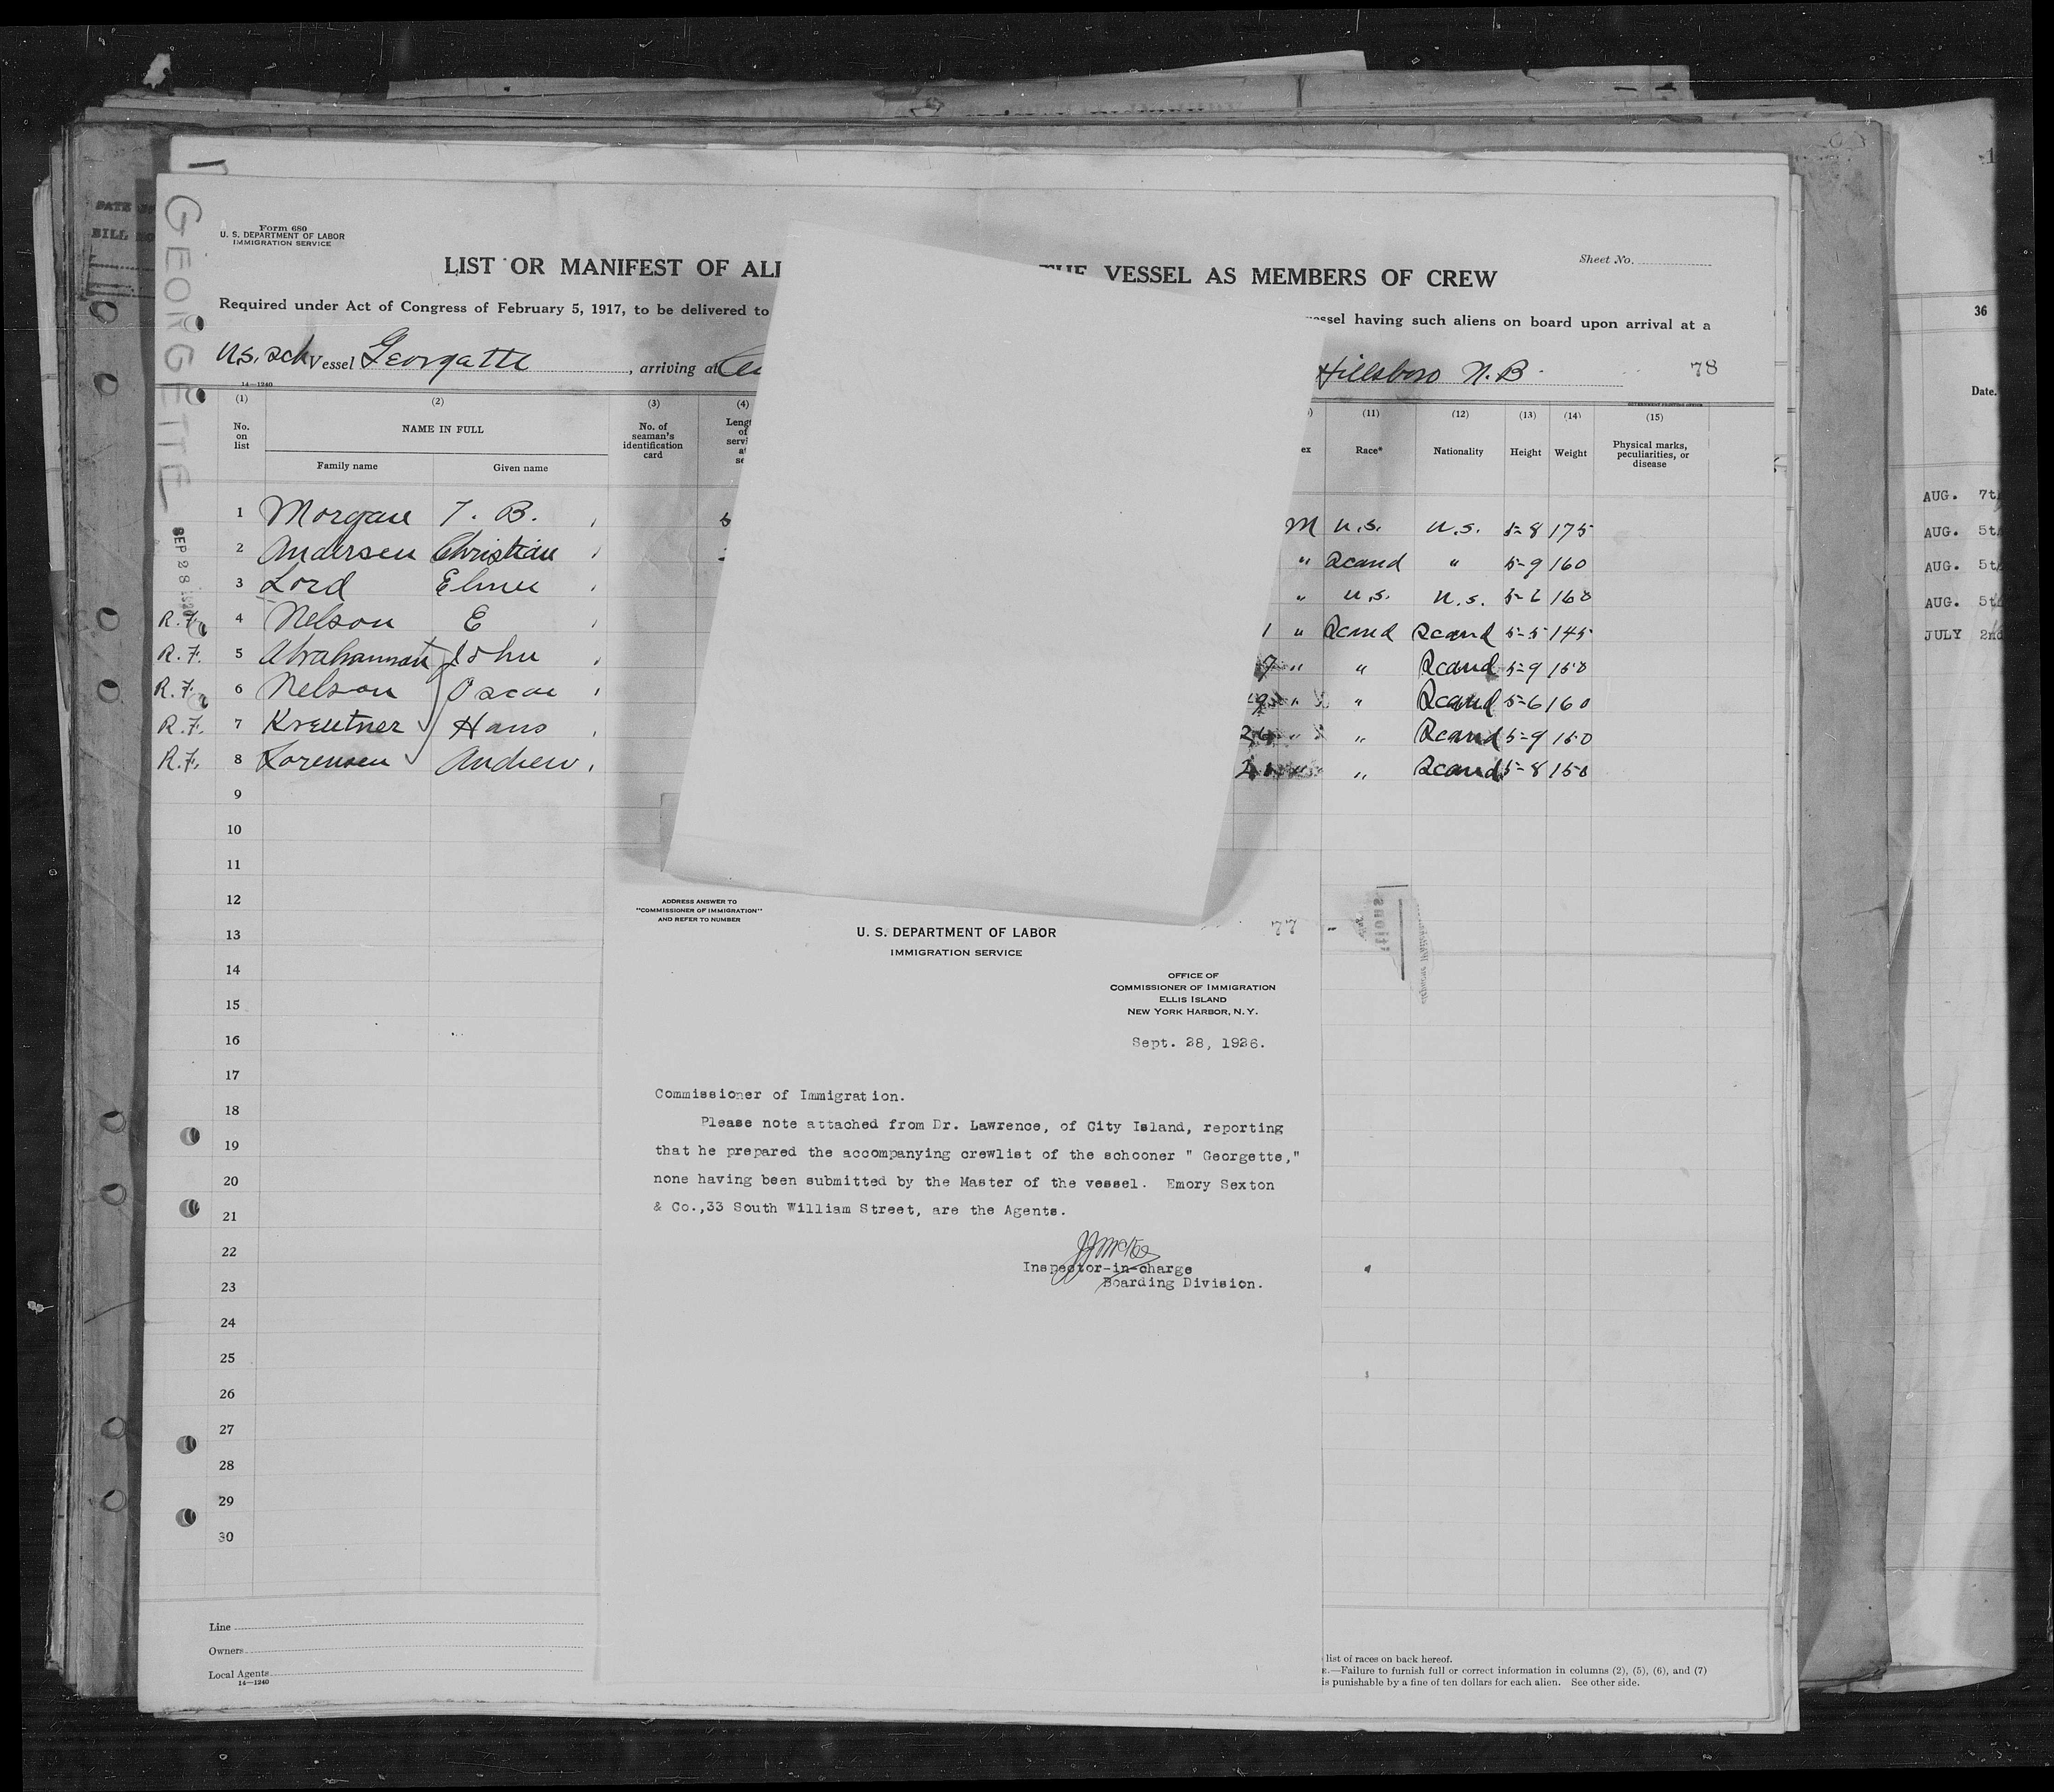 GEORGETTE
Form 680
U. S. DEPARTMENT OF LABOR
IMMIGRATION SERVICE
LIST OR MANIFEST OF ALI
THE VESSEL AS MEMBERS OF CREW
Sheet No.
Required under Act of Congress of February 5, 1917, to be delivered to
vessel having such aliens on board upon arrival at a
U.S. Sch Vessel Georgette, arriving at
Hillsboro N.B. 78
14—1240
(1) (2) (3) (4) (11) (12) (13) (14) (15)
No. on list NAME IN FULL No. of seaman's identification card ex Race* Nationality Height Weight Physical marks, peculiarities, or disease
Family name Given name
1 Morgan T. B. M U.S. U.S. 5-8 175
2 Andersen Christian " Scand " 5-9 160
3 Lord Elmer " U.S. U.S. 5-6 160
R.F. 4 Nelson E 1 " Scand Scand 5-5 145
R.F. 5 John " " Scand 5-9 150
R.F. 6 Nelson Oscar " Scand 5-6 160
R.F. 7 Kreutner Hans " Scand 5-9 150
R.F. 8 Lorensen Andrew " Scand 5-8 150
9
10
11
12
13
14
15
16
17
18
19
20
21
22
23
24
25
26
27
28
29
30
Line
Owners
Local Agents
14—1240
list of races on back hereof.
E.—Failure to furnish full or correct information in columns (2), (5), (6), and (7)
is punishable by a fine of ten dollars for each alien. See other side.
ADDRESS ANSWER TO
"COMMISSIONER OF IMMIGRATION"
AND REFER TO NUMBER
77
U. S. DEPARTMENT OF LABOR
IMMIGRATION SERVICE
OFFICE OF
COMMISSIONER OF IMMIGRATION
ELLIS ISLAND
NEW YORK HARBOR, N. Y.
Sept. 28, 1926.
Commissioner of Immigration.
Please note attached from Dr. Lawrence, of City Island, reporting
that he prepared the accompanying crewlist of the schooner " Georgette,"
none having been submitted by the Master of the vessel. Emory Sexton
& Co.,33 South William Street, are the Agents.
Inspector-in-charge
Boarding Division.
36
Date.
AUG. 7th
AUG. 5th
AUG. 5th
AUG. 5th
JULY 2nd